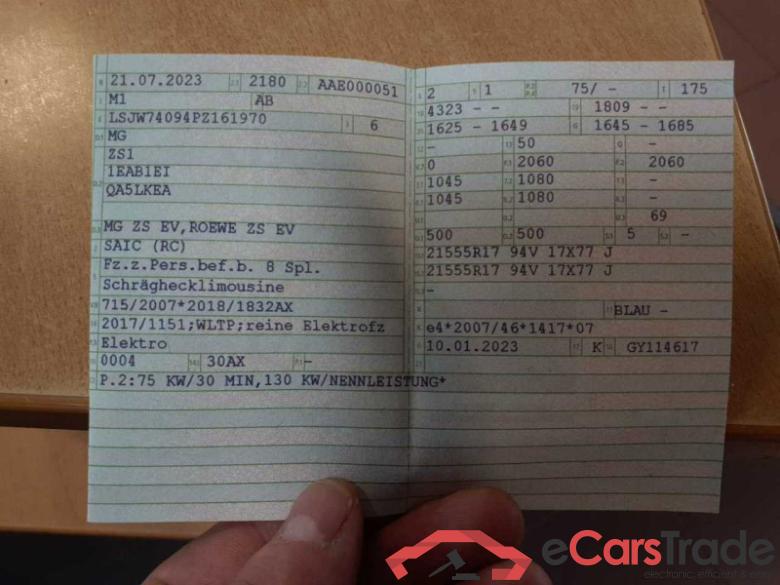 21.07.2023 2180 AAE000051
M1 AB
LSJW74094PZ161970 6
MG
ZS1
1EAB1EI
QA5LKEA
MG ZS EV,ROEWE ZS EV
SAIC (RC)
Fz.z.Pers.bef.b. 8 Spl.
Schräghecklimousine
715/2007*2018/1832AX
2017/1151;WLTP;reine Elektrofz
Elektro
0004 30AX -
P.2:75 KW/30 MIN,130 KW/NENNLEISTUNG*
2 1 75/ - 175
4323 - - 1809 - -
1625 - 1649 1645 - 1685
- 50 -
0 2060 2060
1045 1080 -
1045 1080 -
69
500 500 5 -
21555R17 94V 17X77 J
21555R17 94V 17X77 J
-
BLAU -
e4*2007/46*1417*07
10.01.2023 K GY114617
eCarsTrade
electronic, efficient & easy